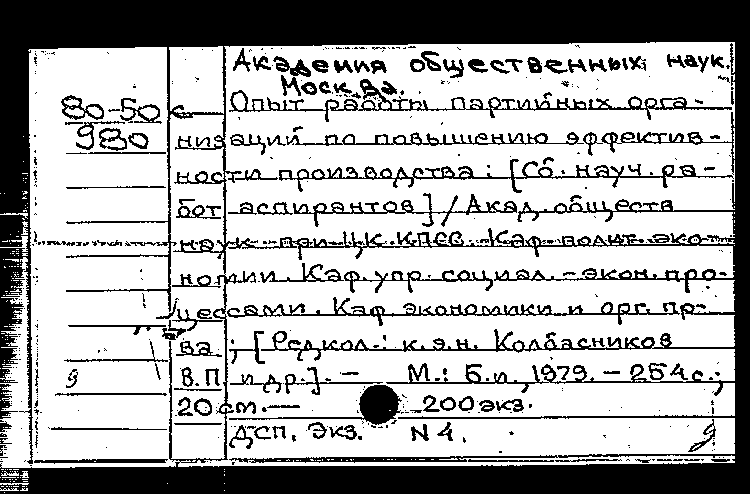 Академия общественных наук.
Москва.
80-50 Опыт работы партийных орга-
980 низаций по повышению эффектив-
ности производства: [Сб. науч. ра-
бот аспирантов] / Акад. обществ
наук при ЦК КПСС. Каф полит. эко-
номии. Каф. упр. социал.-экон. про-
цессами. Каф. экономики и орг. пр-
ва ; [Редкол.: к.э.н. Колбасников
9 В.П и др.]. - М.: Б.и., 1979. - 254 с.;
20 см. — 200 экз.
ДСП. Экз. N 4. 9